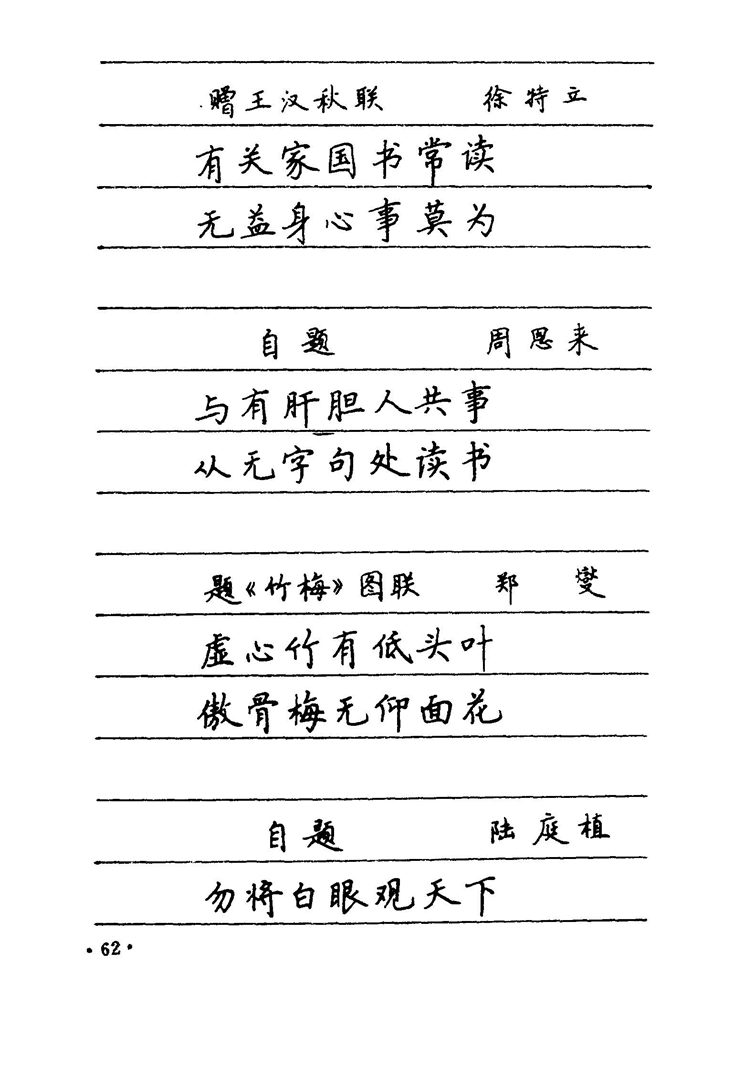 赠王汉秋联 徐特立
有关家国书常读
无益身心事莫为
自题 周恩来
与有肝胆人共事
从无字句处读书
题《竹梅》图联 郑燮
虚心竹有低头叶
傲骨梅无仰面花
自题 陆庭植
勿将白眼观天下
·62·